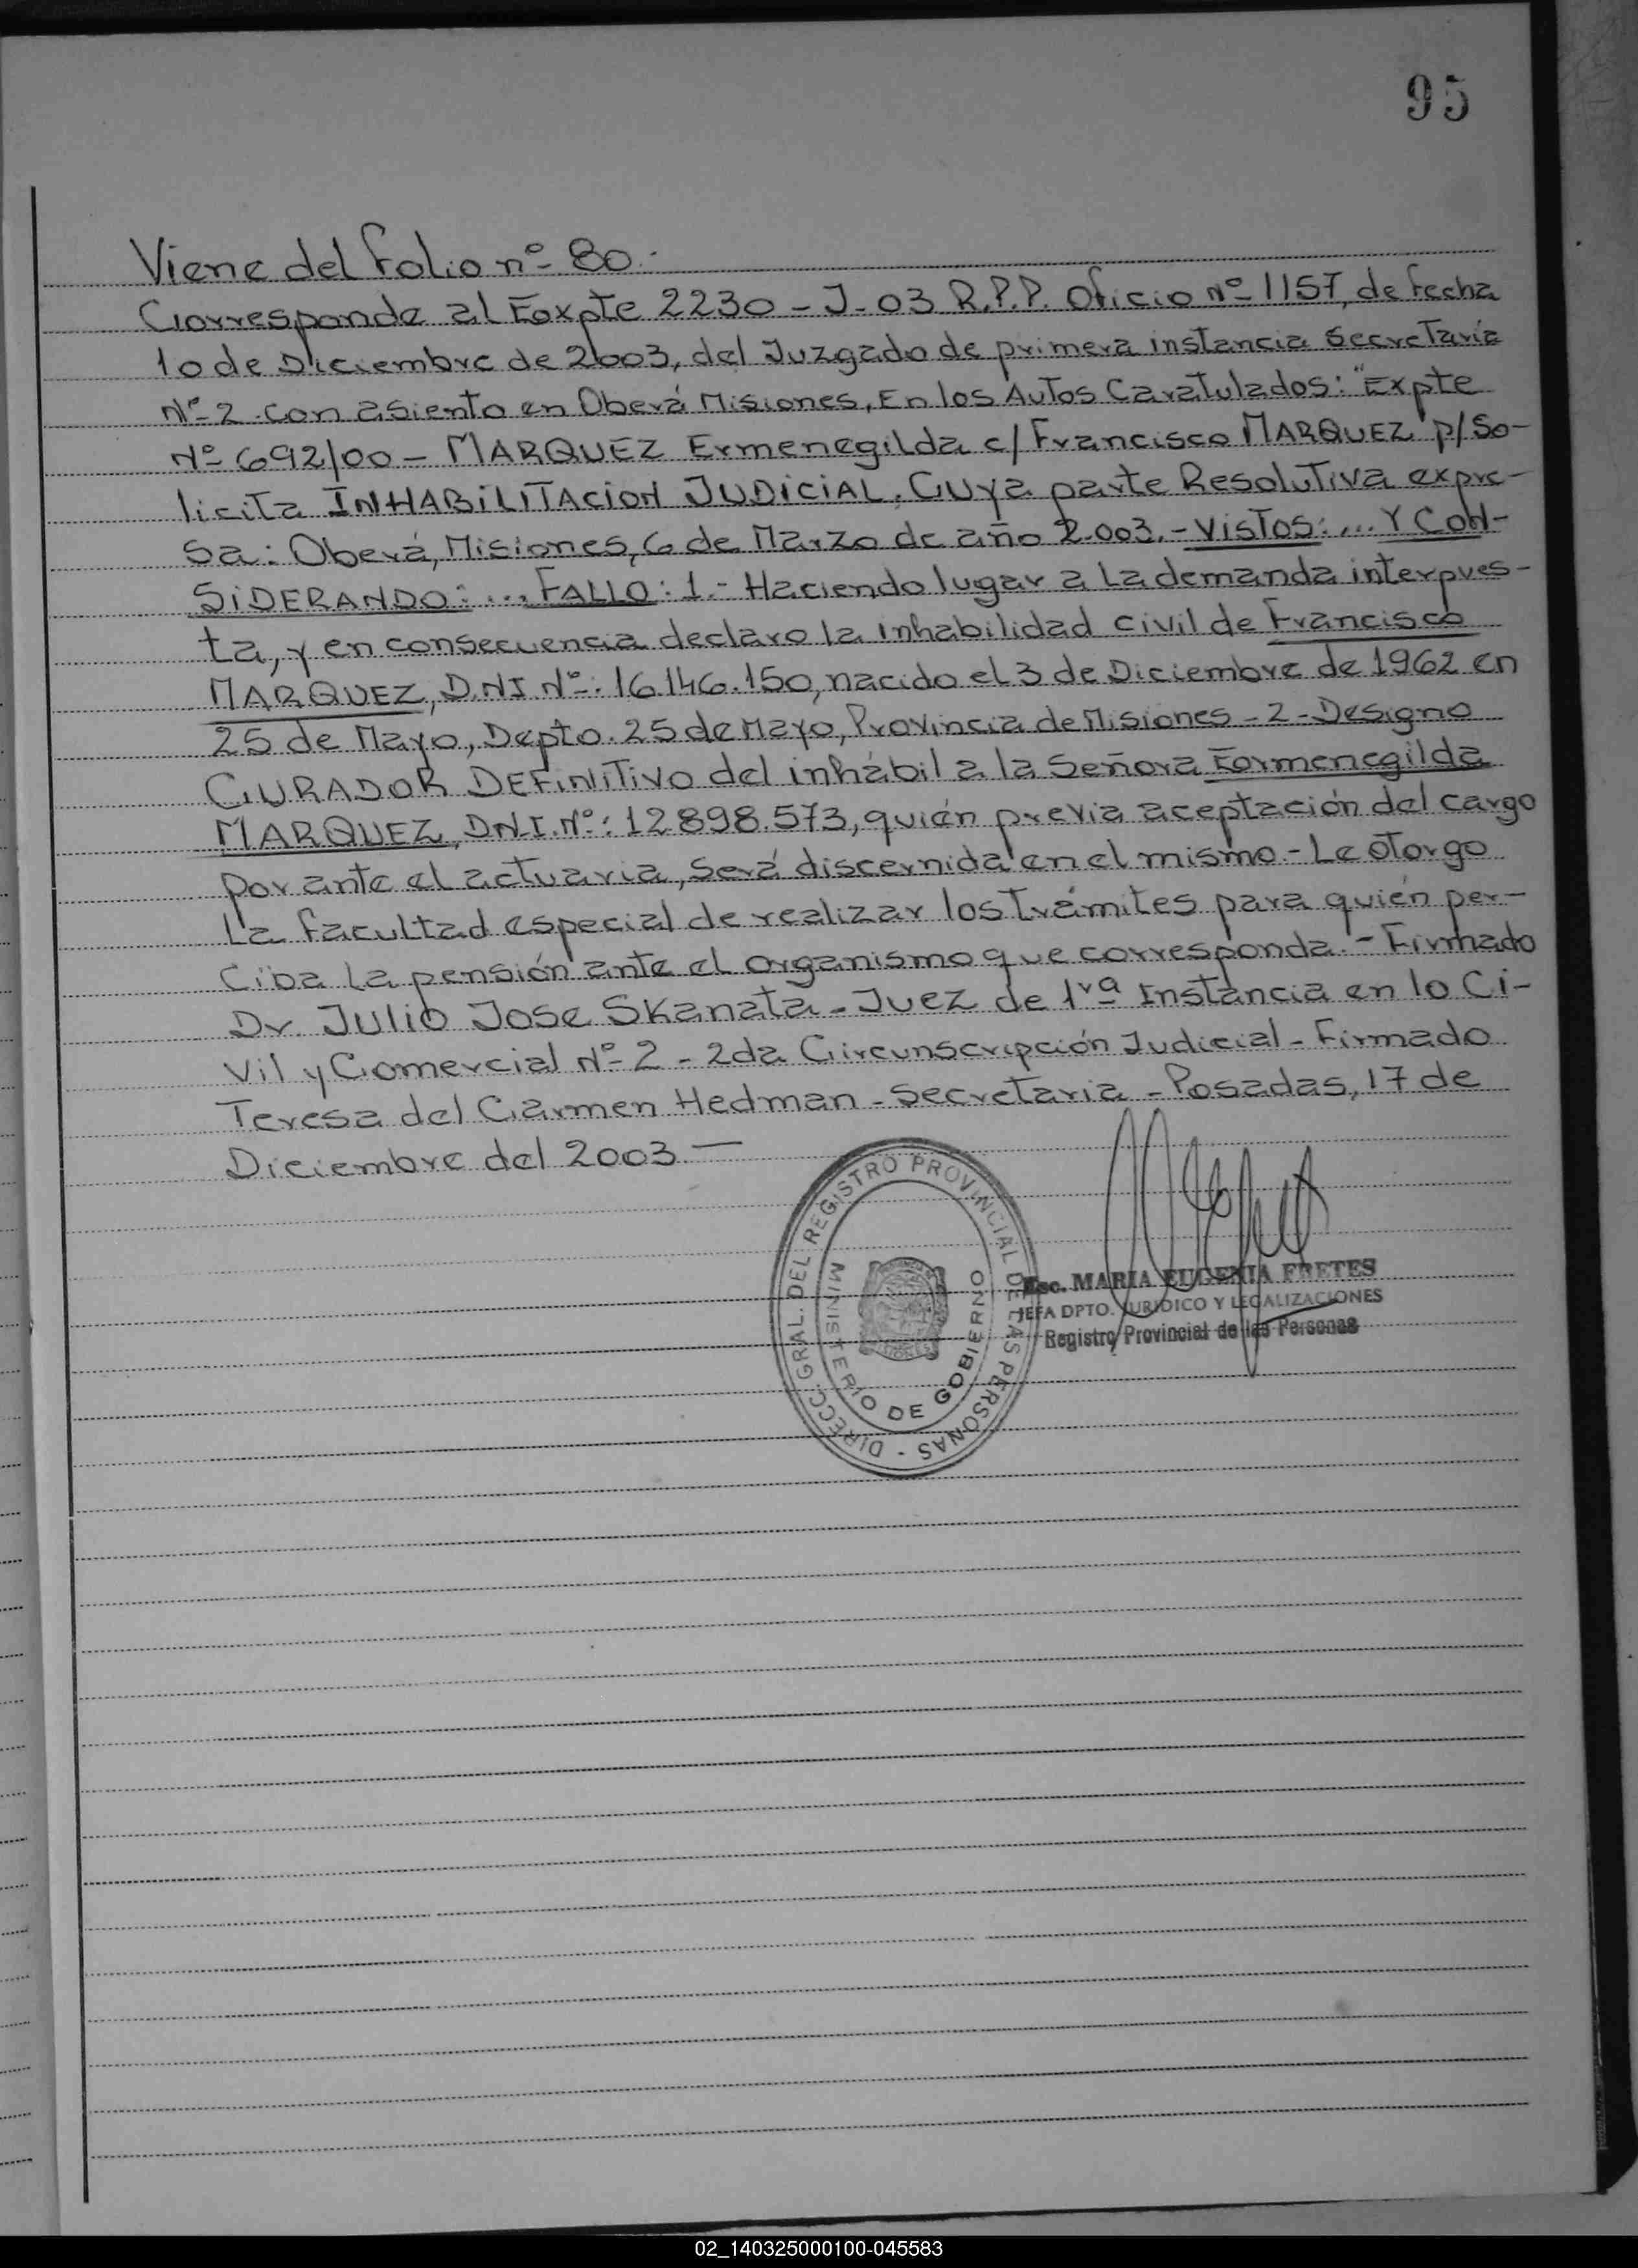 95
Viene del folio nº 80.-
Corresponde al Expte 2230 - J - 03 R.P.P. Oficio nº 1157, de fecha
10 de Diciembre de 2003, del Juzgado de primera instancia Secretaría
Nº 2 con asiento en Oberá Misiones, En los Autos Caratulados: "Expte
Nº 692/00 - MARQUEZ Ermenegilda c/ Francisco MARQUEZ p/ So-
licita INHABILITACION JUDICIAL. Cuya parte Resolutiva expre-
sa: Oberá, Misiones, 6 de Marzo de año 2.003. - VISTOS: ... Y CON-
SIDERANDO: ... FALLO: 1.- Haciendo lugar a la demanda interpues-
ta, y en consecuencia declaro la inhabilidad civil de Francisco
MARQUEZ, D.N.I Nº: 16.146.150, nacido el 3 de Diciembre de 1962 en
25 de Mayo, Depto. 25 de Mayo, Provincia de Misiones - 2 - Designo
CURADOR DEFINITIVO del inhábil a la Señora Ermenegilda
MARQUEZ, D.N.I. Nº: 12.898.573, quién previa aceptación del cargo
por ante el actuaria, será discernida en el mismo - Le otorgo
la facultad especial de realizar los trámites para quién per-
ciba la pensión ante el organismo que corresponda. - Firmado
Dr. Julio Jose Skanata - Juez de 1ra Instancia en lo Ci-
vil y Comercial Nº 2 - 2da Circunscripción Judicial - Firmado
Teresa del Carmen Hedman - Secretaria - Posadas, 17 de
Diciembre del 2003 —
DIRECC. GRAL. DEL REGISTRO PROVINCIAL DE LAS PERSONAS -
MINISTERIO DE GOBIERNO
MISIONES
Esc. MARIA EUGENIA FRETES
JEFA DPTO. JURIDICO Y LEGALIZACIONES
Registro Provincial de las Personas
02_140325000100-045583